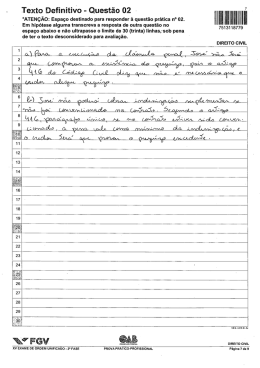 Texto Definitivo - Questão 02
"ATENÇÃO: Espaço destinado para responder à questão prática nº 02.
Em hipótese alguma transcreva a resposta de outra questão no
espaço abaixo e não ultrapasse o limite de 30 (trinta) linhas, sob pena
de ter o texto desconsiderado para avaliação.
7513118779
DIREITO CIVIL
1 a) Para a execução da cláusula penal, José não terá
2 que comprovar a existência do prejuízo, pois o artigo
3 416 do Código Civil diz que não é necessário que o
4 credor alegue prejuízo.
5
6 b) José não poderá cobrar indenização suplementar se
7 não foi convencionado no contrato. Segundo o artigo
8 416, parágrafo único, se no contrato estiver sido conven-
9 cionado, a pena vale como mínimo da indenização, e
10 o credor terá que provar o prejuízo excedente.
FGV
OAB
XV EXAME DE ORDEM UNIFICADO - 2ª FASE
PROVA PRÁTICO-PROFISSIONAL
DIREITO CIVIL